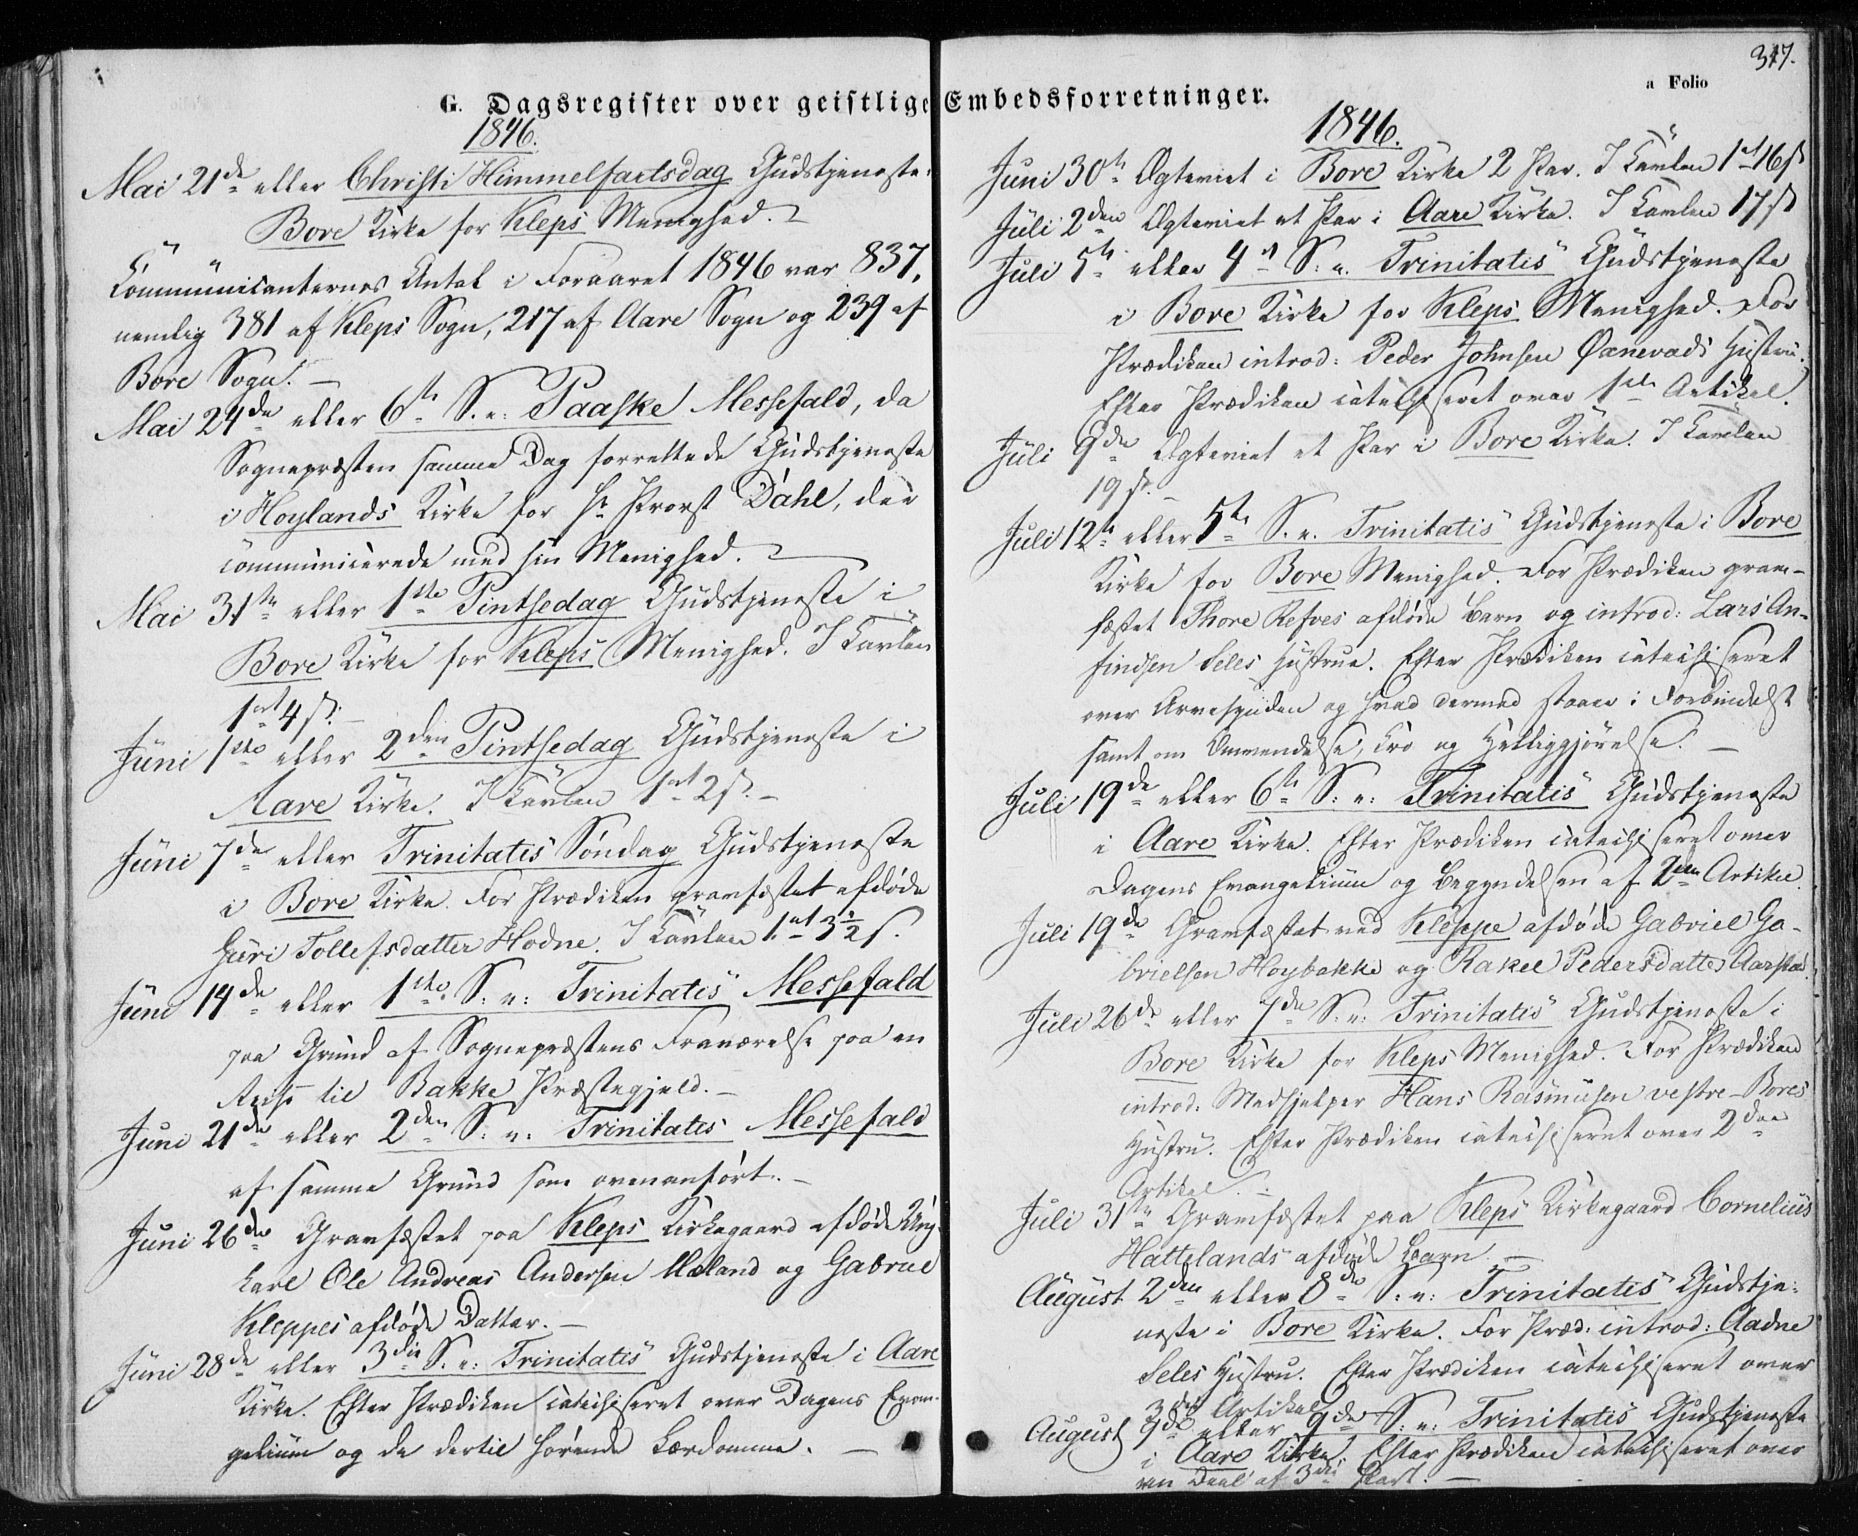 317.
a Folio
G. Dagsregister over geistlige Embedsforretninger.
1846.
Mai 21de eller Christi Himmelfartsdag Gudstjeneste i
Bore Kirke for Kleps Menighed.
Communicanternes Antal i Foraaret 1846 var 837,
nemlig 381 af Kleps Sogn, 217 af Aare Sogn og 239 af
Bore Sogn. –
Mai 24de eller 6te S. e: Paaske Messefald, da
Sognepræsten samme Dag forrettede Gudstjeneste
i Hoylands Kirke for Hr Provst Dahl, der
communicerede med sin Menighed.
Mai 31te eller 1ste Pintsedag Gudstjeneste i
Bore Kirke for Kleps Menighed. I Tavlen
1ort 4 s. –
Juni 1ste eller 2den Pintsedag Gudstjeneste i
Aare Kirke. I Tavlen 1ort 2 s. –
Juni 7de eller Trinitatis Søndag Gudstjeneste
i Bore Kirke. For Prædiken gravfæstet afdøde
Guri Tollefsdatter Hodne. I Tavlen 1ort 3½ s.
Juni 14de eller 1ste S: e: Trinitatis Messefald
paa Grund af Sognepræstens Fraværelse paa en
Reise til Bakke Præstegjeld. –
Juni 21de eller 2den S: e: Trinitatis Messefald
af samme Grund som ovenanført. –
Juni 26de Gravfæstet paa Kleps Kirkegaard afdøde Ung-
karl Ole Andreas Andersen Mæland og Gabriel
Kleppes afdøde Datter. –
Juni 28de eller 3die S. e: Trinitatis Gudstjeneste i Aare
Kirke. Efter Prædiken catechiseret over Dagens Evan-
gelium og de dertil hørende Lærdomme. –
1846.
Juni 30te Ægteviet i Bore Kirke 2 Par. I Tavlen 1ort 16 s
Juli 2den Ægteviet et Par i Aare Kirke. I Tavlen 17 s
Juli 5te eller 4de S: e. Trinitatis Gudstjeneste
i Bore Kirke for Kleps Menighed. For
Prædiken introd: Peder Johnsen Øxnevads Hustru.
Efter Prædiken catechiseret over 1ste Artikel.
Juli 9de Ægteviet et Par i Bore Kirke. I Tavlen
19 s. –
Juli 12te eller 5te S. e. Trinitatis Gudstjeneste i Bore
Kirke for Bore Menighed. For Prædiken grav-
fæstet Thore Refves afdøde Barn og introd: Lars An-
findsen Seles Hustrue. Efter Prædiken catechiseret
over Arvesynden og hvad dermed staaer i Forbindelse
samt om Omvendelse, Tro og Helliggjørelse. –
Juli 19de eller 6te S: e: Trinitatis Gudstjeneste
i Aare Kirke. Efter Prædiken catechiseret over
Dagens Evangelium og Begyndelsen af 2den Artikel.
Juli 19de Gravfæstet ved Kleppe afdøde Gabriel Ga-
brielsen Hoybakke og Rakel Pedersdatter Aarstad.
Juli 26de eller 7de S: e: Trinitatis Gudstjeneste i
Bore Kirke for Kleps Menighed. For Prædiken
introd. Medhjelper Hans Rasmusen vestre Bores
Hustru. Efter Prædiken catechiseret over 2den
Artikel. –
Juli 31te Gravfæstet paa Kleps Kirkegaard Cornelius
Hattelands afdøde Barn. –
August 2den eller 8de S: e: Trinitatis Gudstje-
neste i Bore Kirke. For Præd: introd: Aadne
Seles Hustru. Efter Prædiken catechiseret over
3die Artikel
August 9de eller 9de S: e: Trinitatis Gudstjeneste
i Aare Kirke. Efter Prædiken catechiseret over
en Deel af 3die Part. –